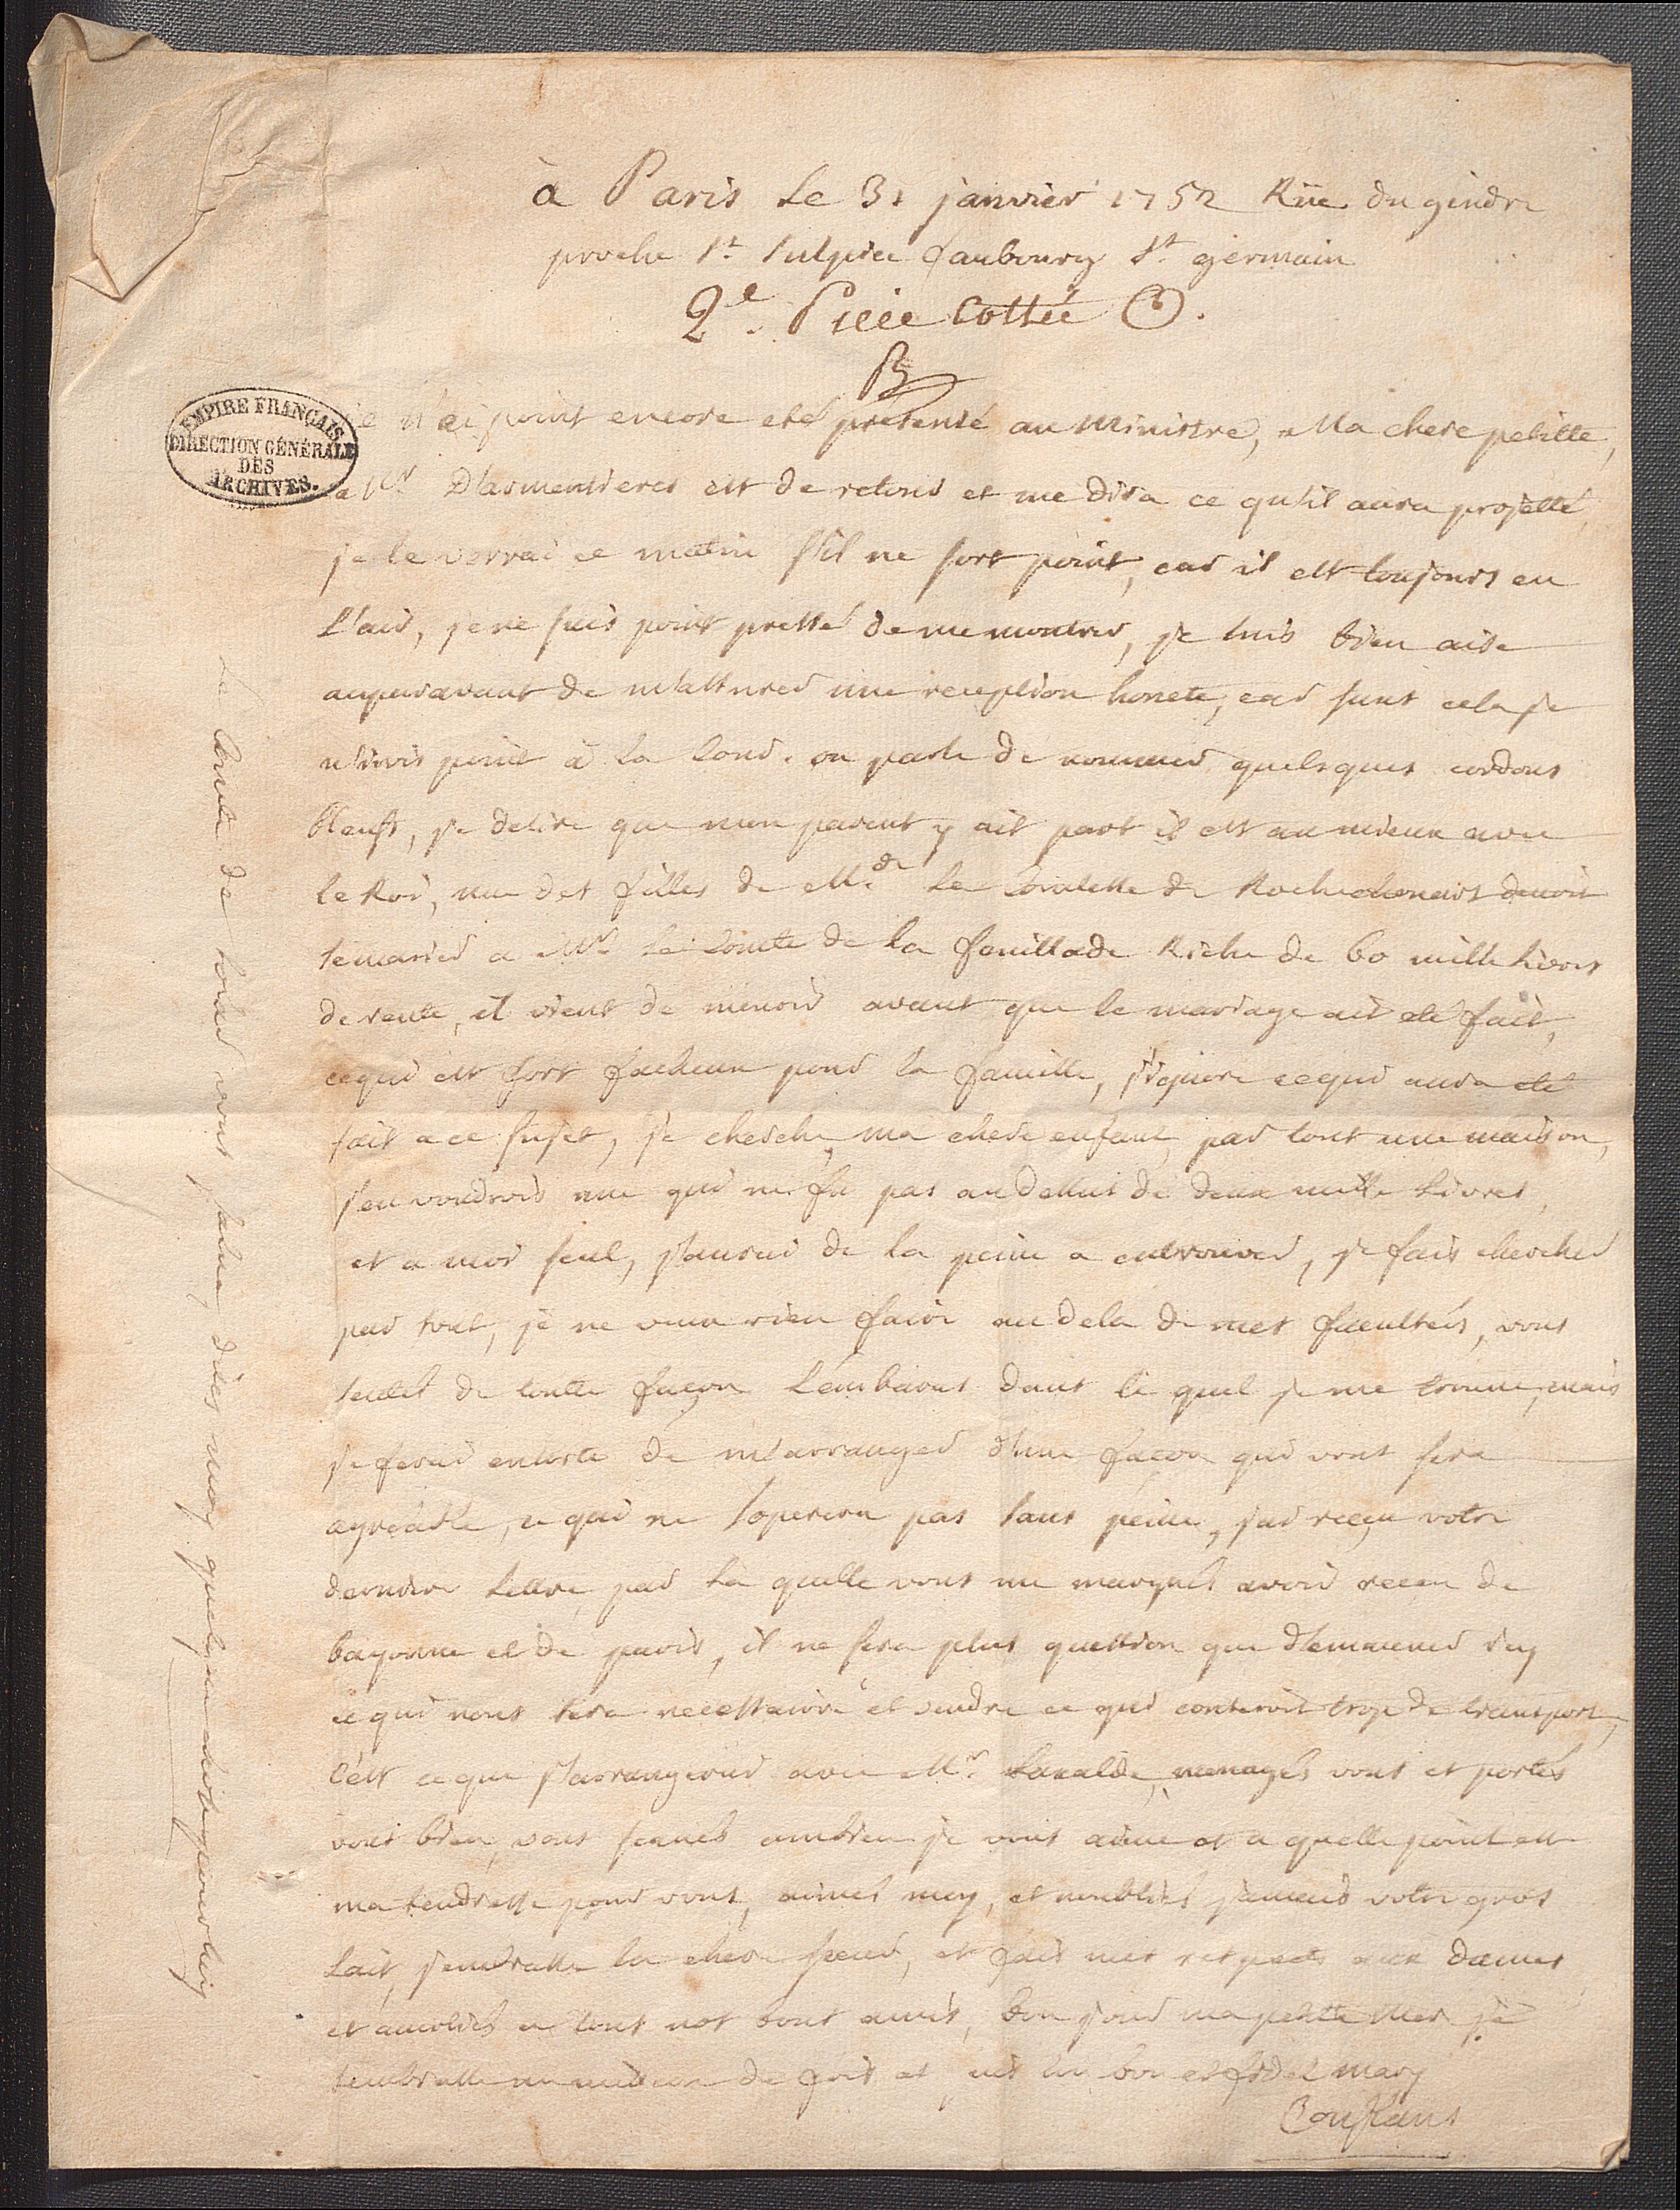 à Paris Le 31 janvier 1752 Rüe du gindre
proche St Sulpice faubourg St germain
2e. Piece Cottée
B
EMPIRE FRANÇAIS
DIRECTION GÉNÉRALE
DES
ARCHIVES.
n'ai point encore eté présenté au Ministre, Ma chere petitte,
Mr D'armentieres est de retour et me dira ce qu'il aura projetté
je le verrai ce matin s'il ne sort point, car il est toujours en
l'air, je ne suis point pressé de me montrer, je suis bien aise
auparavant de m'assurer une reception honete, car sans cela je
n'irois point à la Cour. on parle de nommer quelques cordons
bleufs, je desire que mon parent y ait part il est au mieux avec
le Roi, une des filles de Mde la Comtesse de Rochechouart devoit
se marier a Mr le Comte de la feuillade Riche de 60 mille Livres
de rente, il vient de mourir avant que le mariage ait eté fait,
ce qui est fort facheux pour la famille, j'ignore ce qui aura eté
fait a ce sujet, je cherche, ma chere enfant, par tout une maison,
j'en voudrois une qui ne fu pas au dessus de deux mille Livres,
et a moi seul, j'aurai de la peine a en trouver, je fais chercher
par tout, je ne veux rien faire au dela de mes facultés, vous
sentés de toutte façon L'embaras dans le quel je me trouve, mais
je ferai en sorte de m'arranger d'une façon qui vous sera
agreable, ce qui ne s'operera pas sans peine, j'ai reçu votre
derniere Lettre par la quelle vous me marqués avoir recu de
bayonne et de paris, il ne sera plus question que d'emmener icy
ce qui nous sera necessaire et vendre ce qui couteroit trop de transport,
C'est ce que j'arrangerai avec Mr menagés vous et portés
vous bien, vous scavés combien je vous aime et a quelle point est
ma tendresse pour vous, aimés moy, et n'oubliés jamais votre gros
Lait, j'embrasse la chere soeur, et fais mes respects aux dames
et amitiés a tous nos bons amis, bon jour ma petite Mere je
t'embrasse un million de fois et suis ton bon et fidel mary
Conflans
Le Comte de vous salue, dites moy quelque chose pour luy